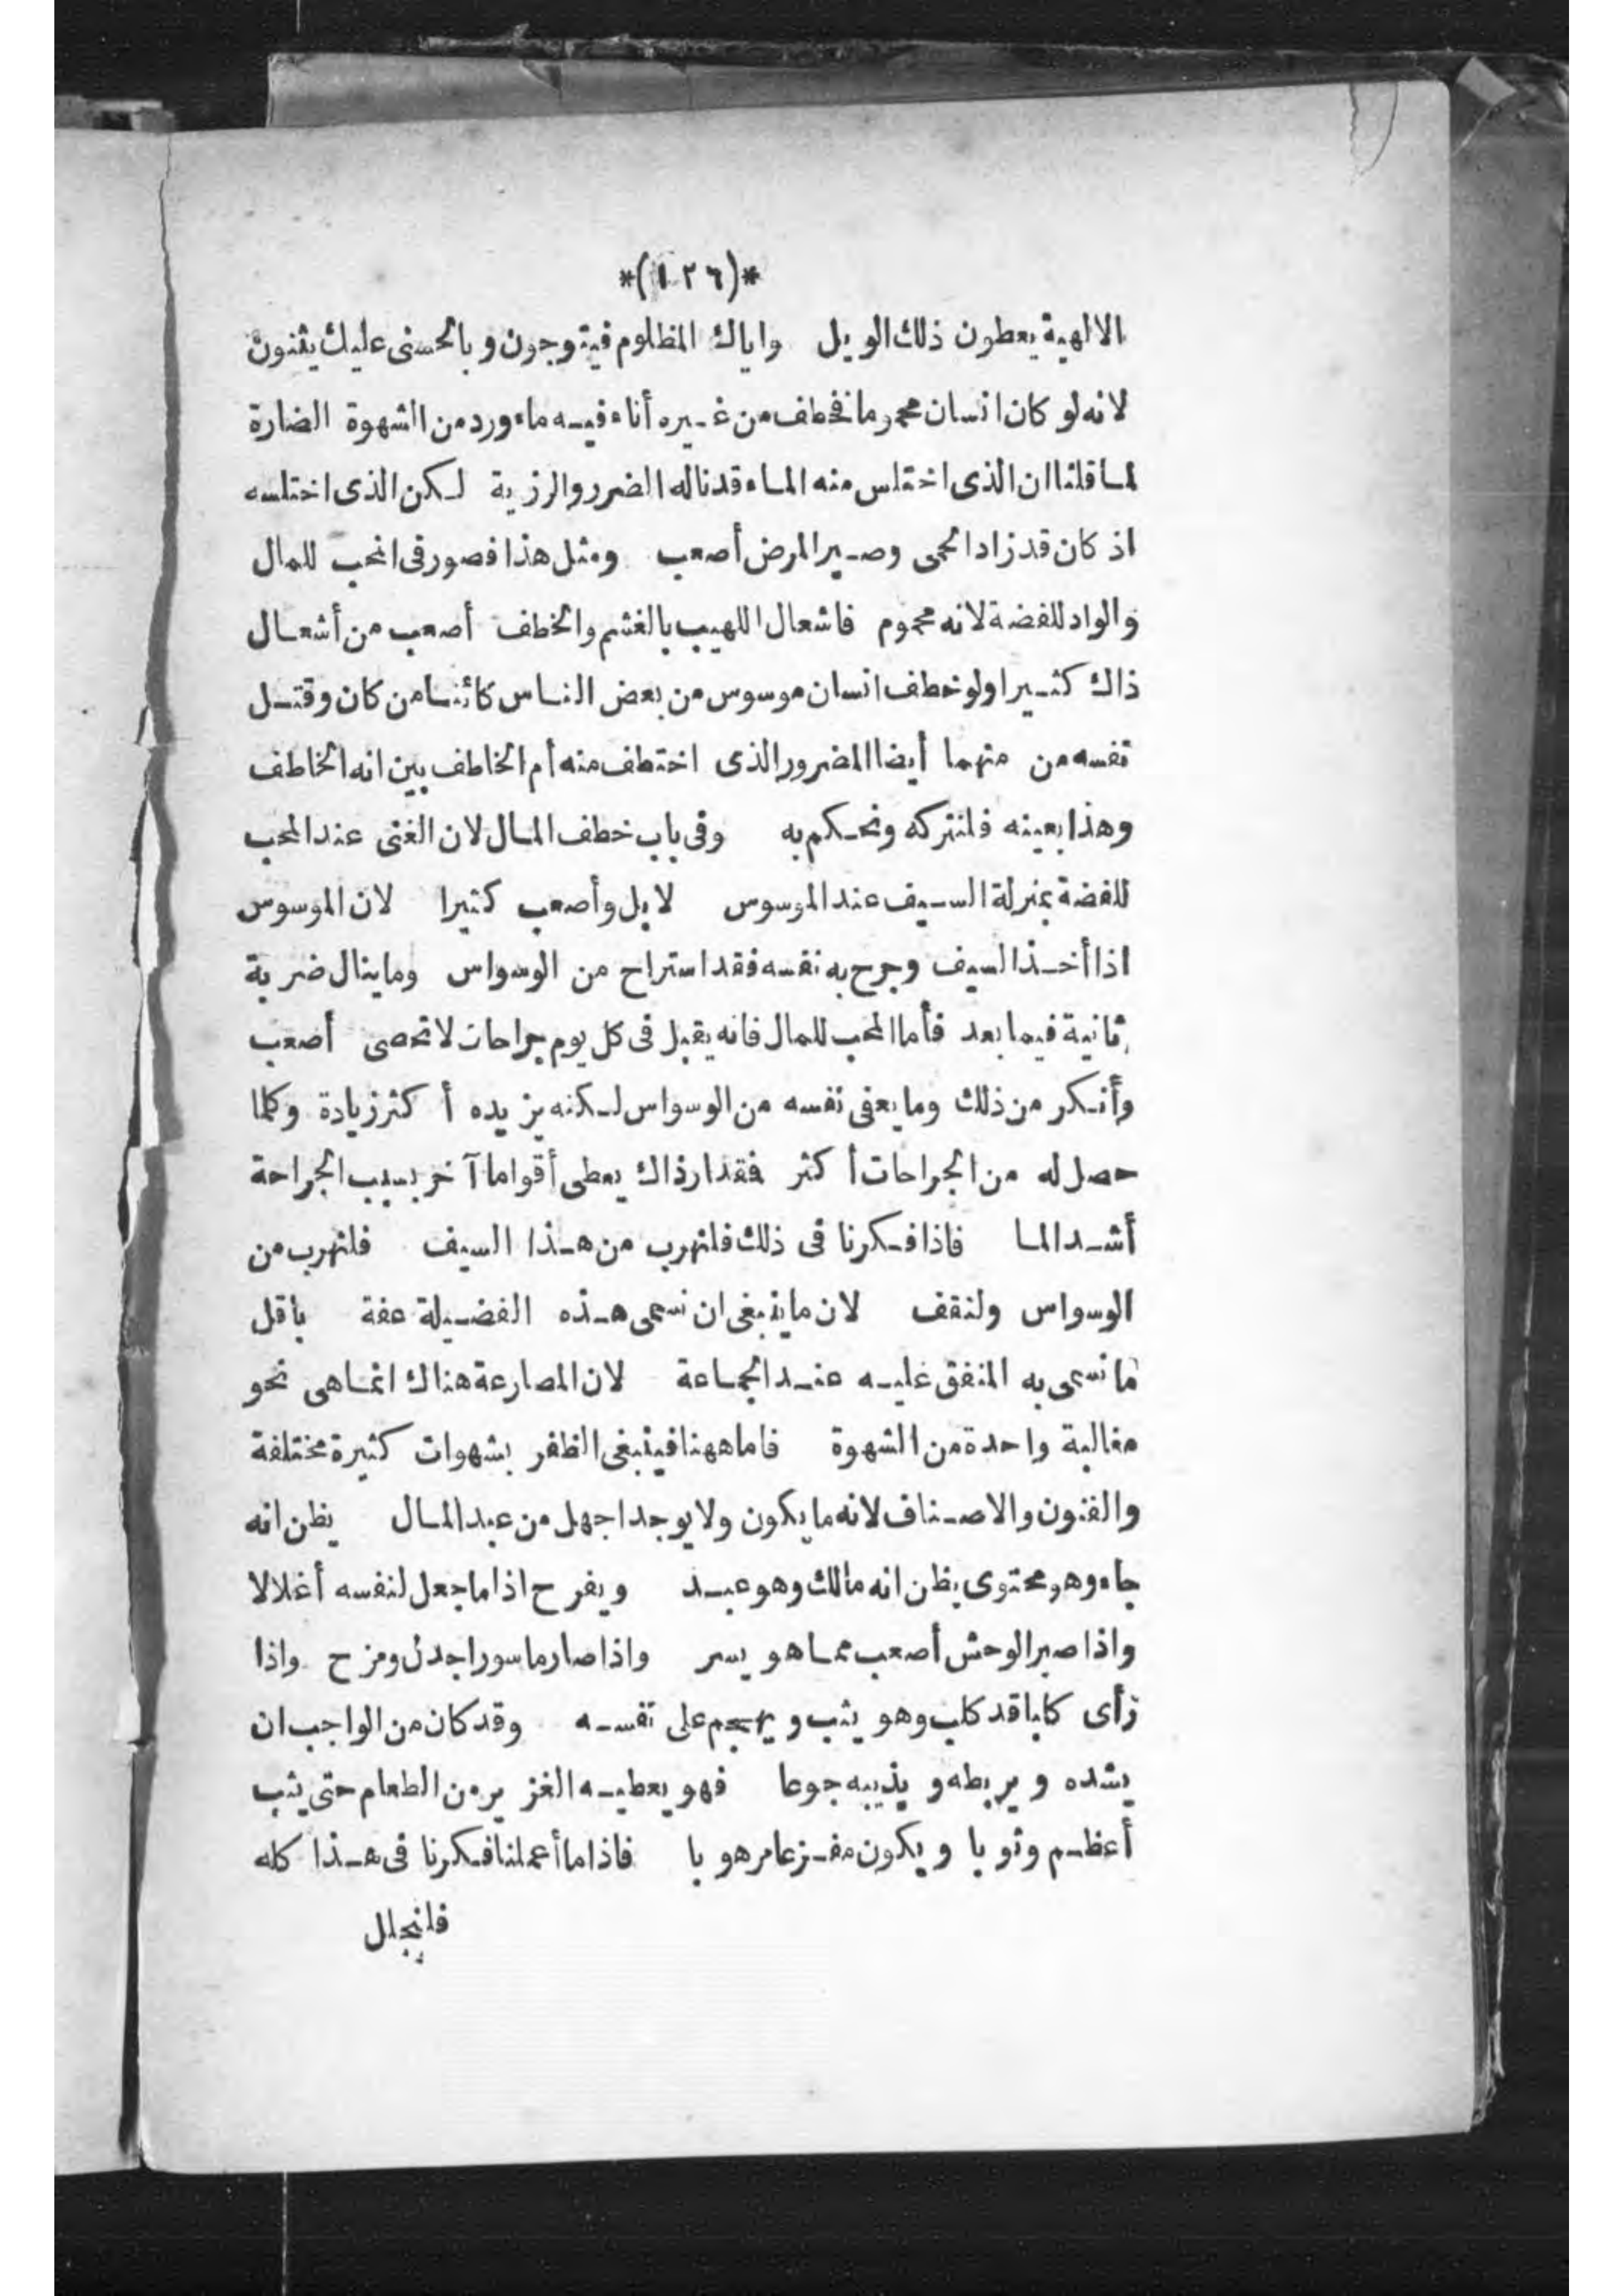 *(١٢٦)*
الالهية يعطون ذلك الويل واياك المظلوم فيتوجون وبالحسنى عليك يثنون
لانه لو كان انسان محموما فخطف من غيره أناء فيه ماء ورد من الشهوة الضارة
لما قلنا ان الذى اختلس منه الماء قد ناله الضرر والرزية لكن الذى اختلسه
اذ كان قد زاد الحمى وصير المرض أصعب ومثل هذا فصور فى المحب للمال
والواد للفضة لانه محموم فاشعال اللهيب بالغشم والخطف أصعب من أشعال
ذاك كثيرا ولو خطف انسان موسوس من بعض الناس كائنا من كان وقتل
نفسه من منهما أيضا المضرور الذى اختطف منه أم الخاطف بين انه الخاطف
وهذا بعينه فلنتركه ونحكم به وفى باب خطف المال لان الغنى عند المحب
للفضة بمنزلة السيف عند الموسوس لا بل وأصعب كثيرا لان الموسوس
اذا أخذ السيف وجرح به نفسه فقد استراح من الوسواس وما ينال ضربة
ثانية فيما بعد فأما المحب للمال فانه يقبل فى كل يوم جراحات لا تحصى أصعب
وأنكر من ذلك وما يعفى نفسه من الوسواس لكنه يزيده أكثر زيادة وكلما
حصل له من الجراحات أكثر فقدار ذاك يعطى أقواما آخر بسبب الجراحة
أشد الما فاذا فكرنا فى ذلك فلنهرب من هذا السيف فلنهرب من
الوسواس ولنقف لان ما ينبغى ان نسمى هذه الفضيلة عفة بأقل
ما نسمى به المنفق عليه عند الجماعة لان المصارعة هناك انما هى نحو
مغالبة واحدة من الشهوة فاما ههنا فينبغى الظفر بشهوات كثيرة مختلفة
والفنون والاصناف لانه ما يكون ولا يوجد اجهل من عبد المال يظن انه
جاء وهو محتوى يظن انه مالك وهو عبد ويفرح اذا ما جعل لنفسه أغلالا
واذا صير الوحش أصعب مما هو يسر واذا صار ماسورا جدل ومزح واذا
رأى كلبا قد كلب وهو يثب ويهجم على نفسه وقد كان من الواجب ان
يشده ويربطه ويذيبه جوعا فهو يعطيه الغزير من الطعام حتى يثب
أعظم وثوبا ويكون مفزعا مرهوبا فاذا ما أعملنا فكرنا فى هذا كله
فلنحلل